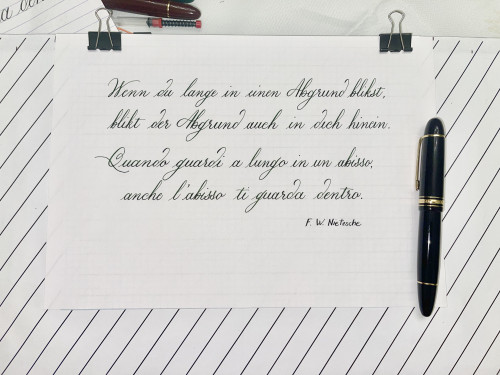 Wenn du lange in einen Abgrund blikst,
blikt der Abgrund auch in dich hinein.
Quando guardi a lungo in un abisso,
anche l'abisso ti guarda dentro.
F. W. Nietzsche